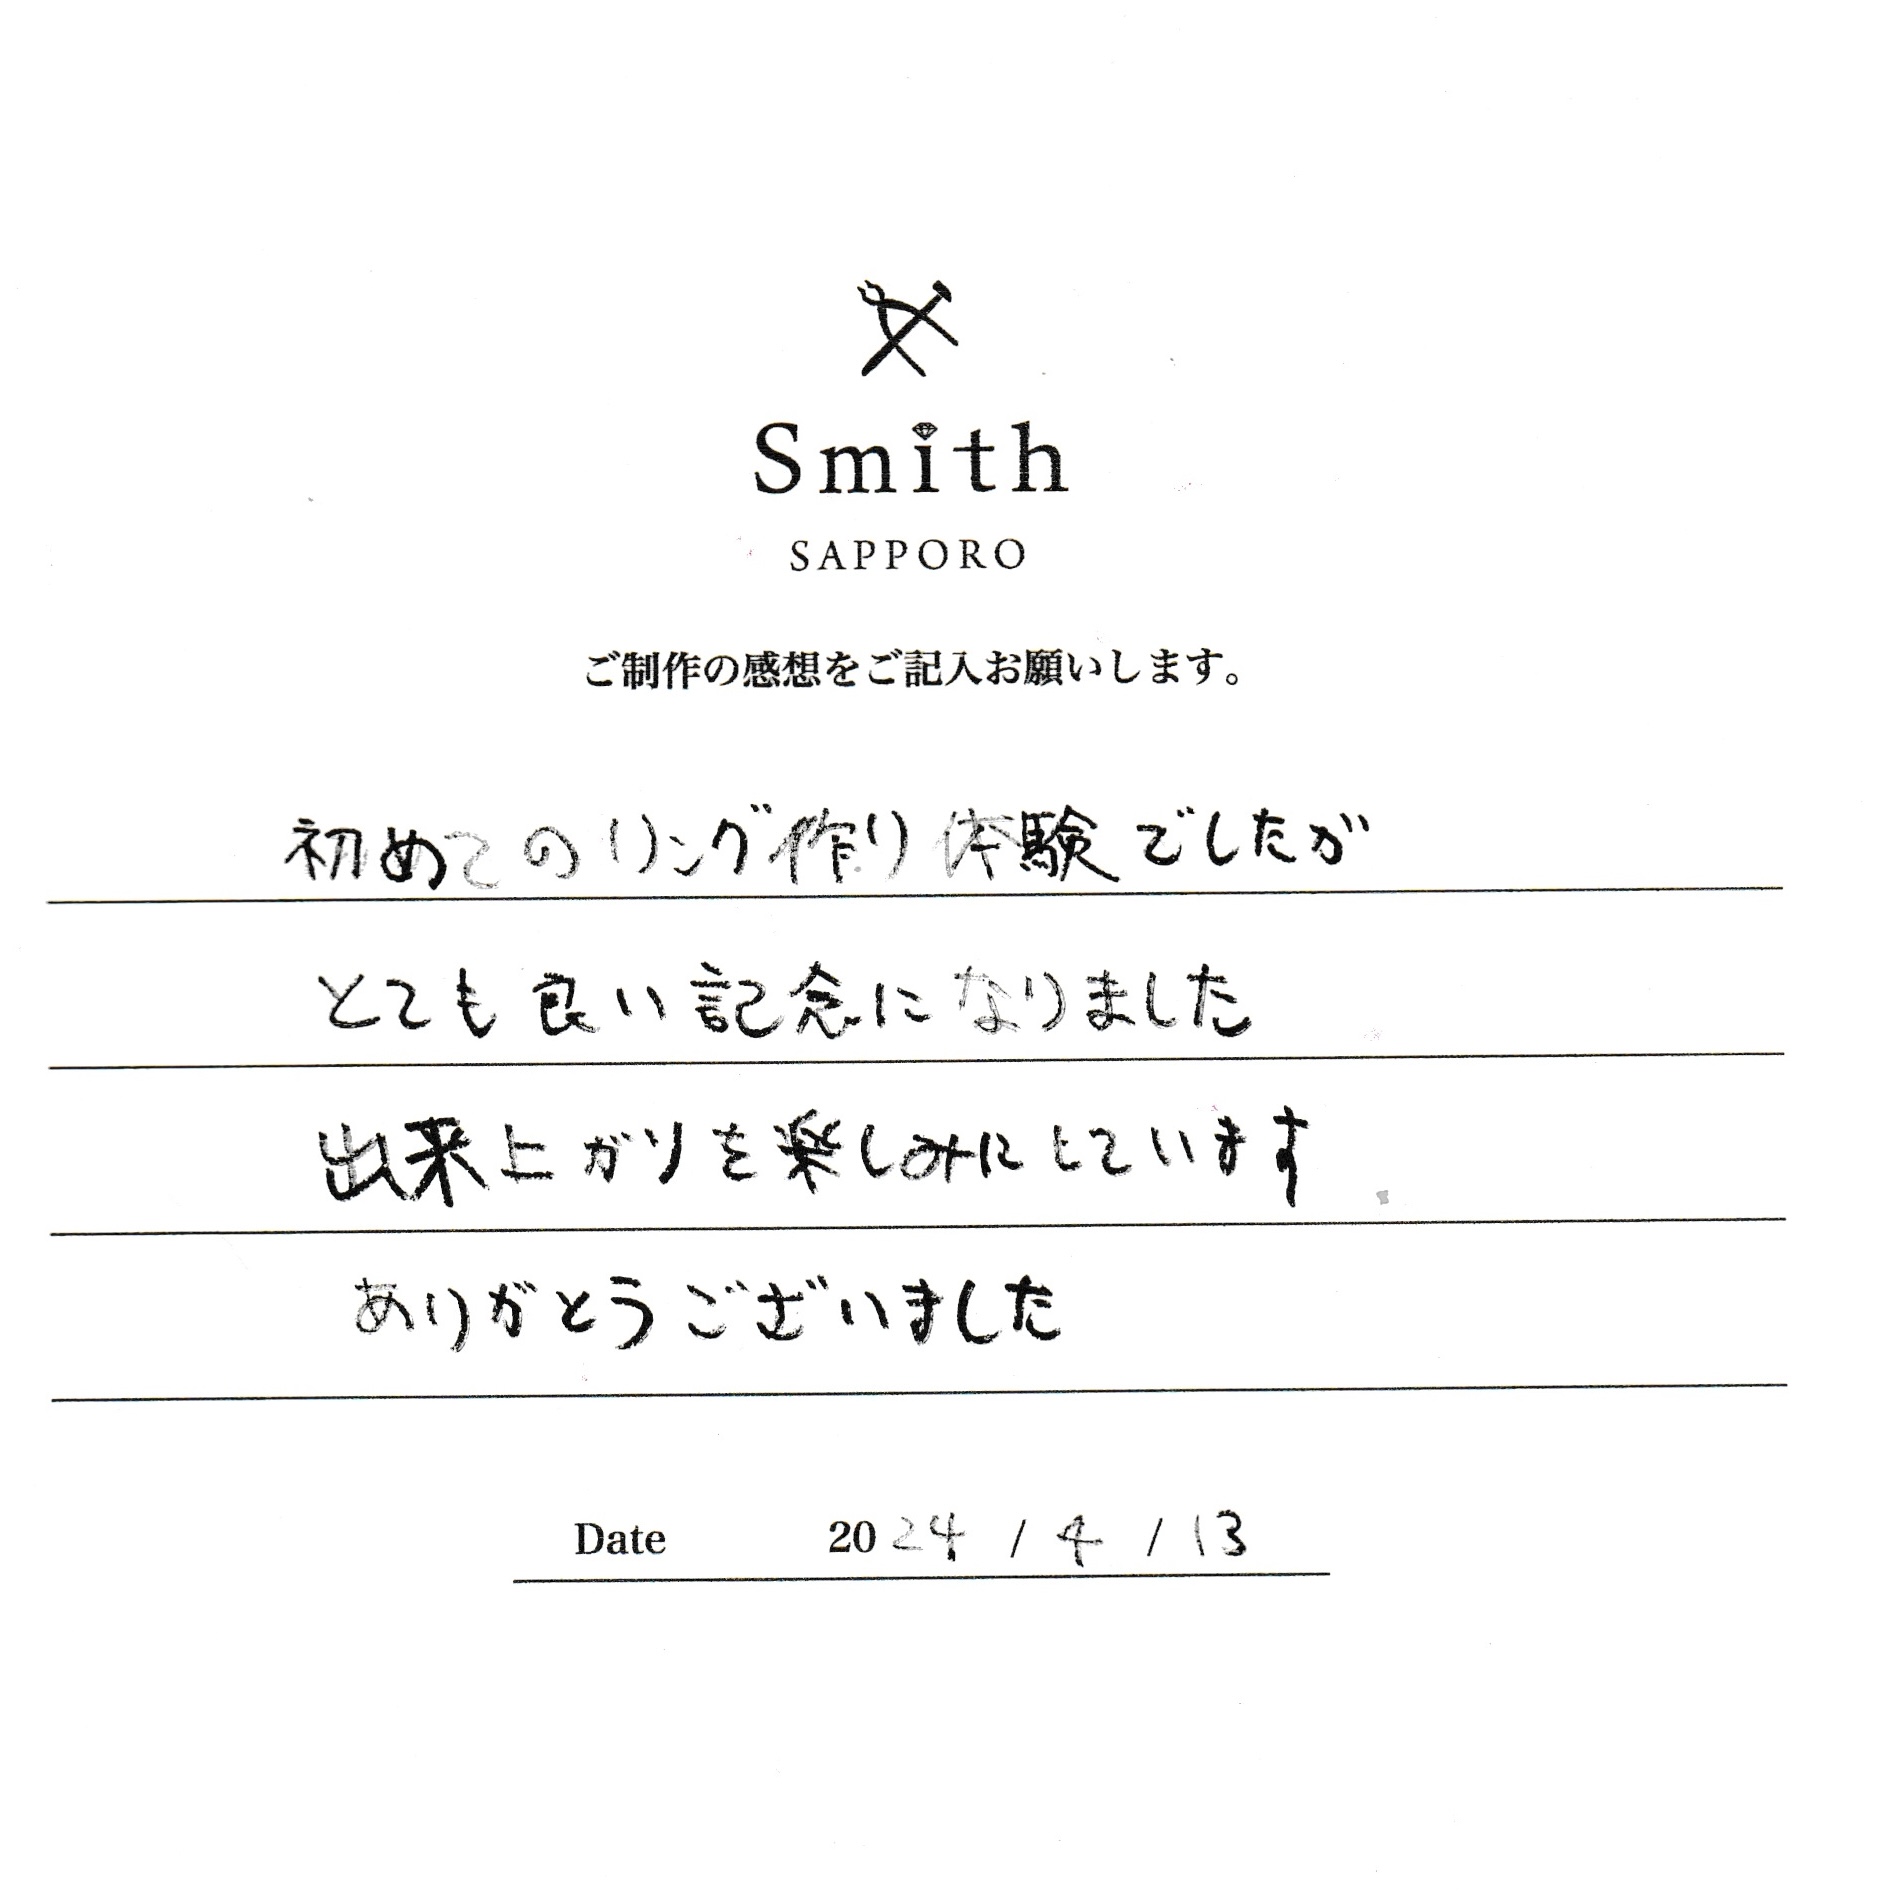 Smith
SAPPORO
ご制作の感想をご記入お願いします。
初めてのリング作り体験でしたが
とても良い記念になりました
出来上がりを楽しみにしています
ありがとうございました
Date 2024 / 4 / 13